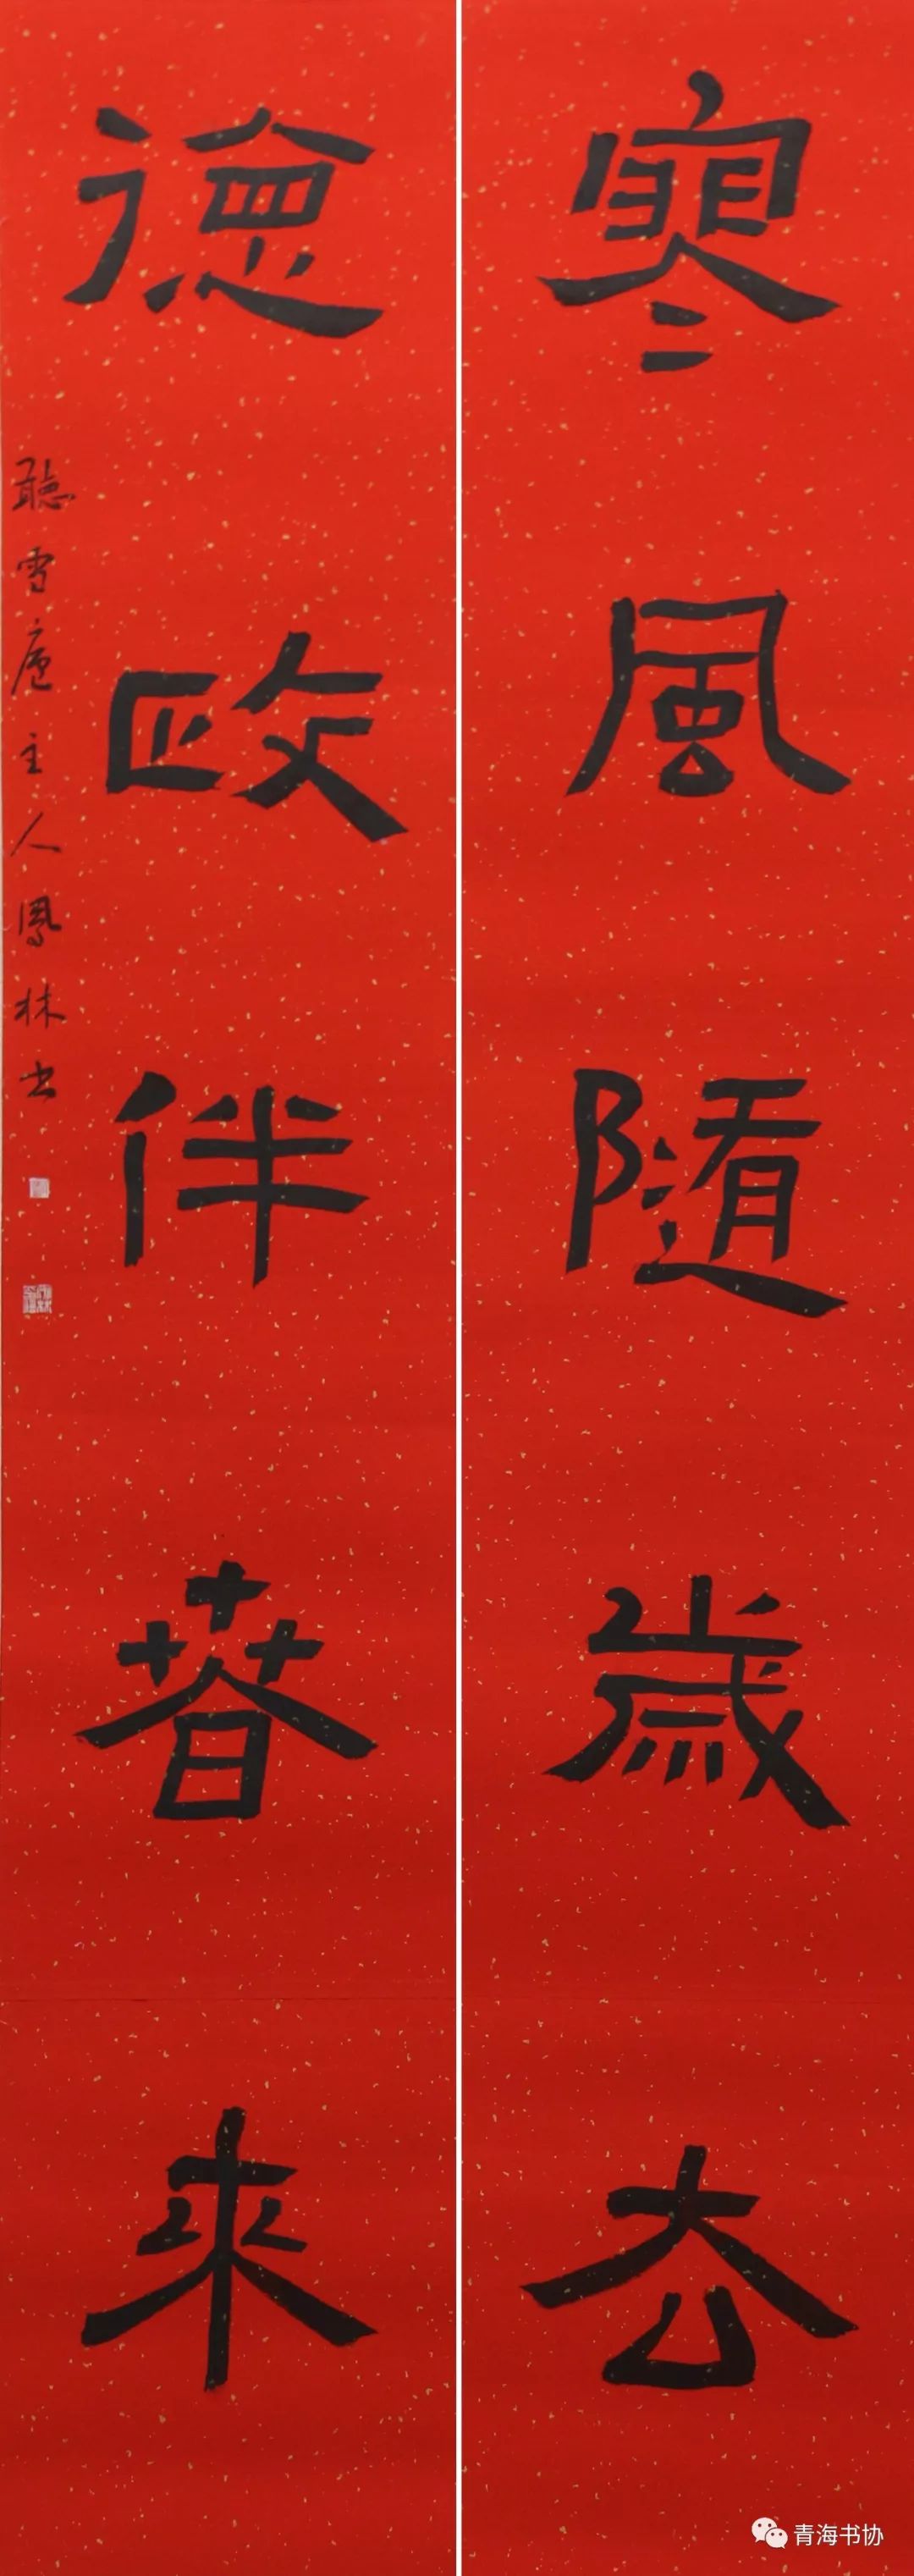 寒風隨歲去
德政伴春來
聽雪廬主人鳳林书
青海书协